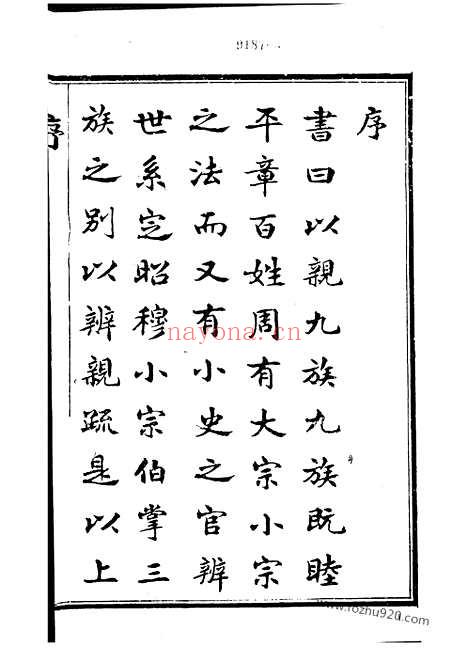 9187
序
書曰以親九族九族既睦
平章百姓周有大宗小宗
之法而又有小史之官辨
世系定昭穆小宗伯掌三
族之別以辨親疏是以上
序
nayona.cn
www.fozhu920.com